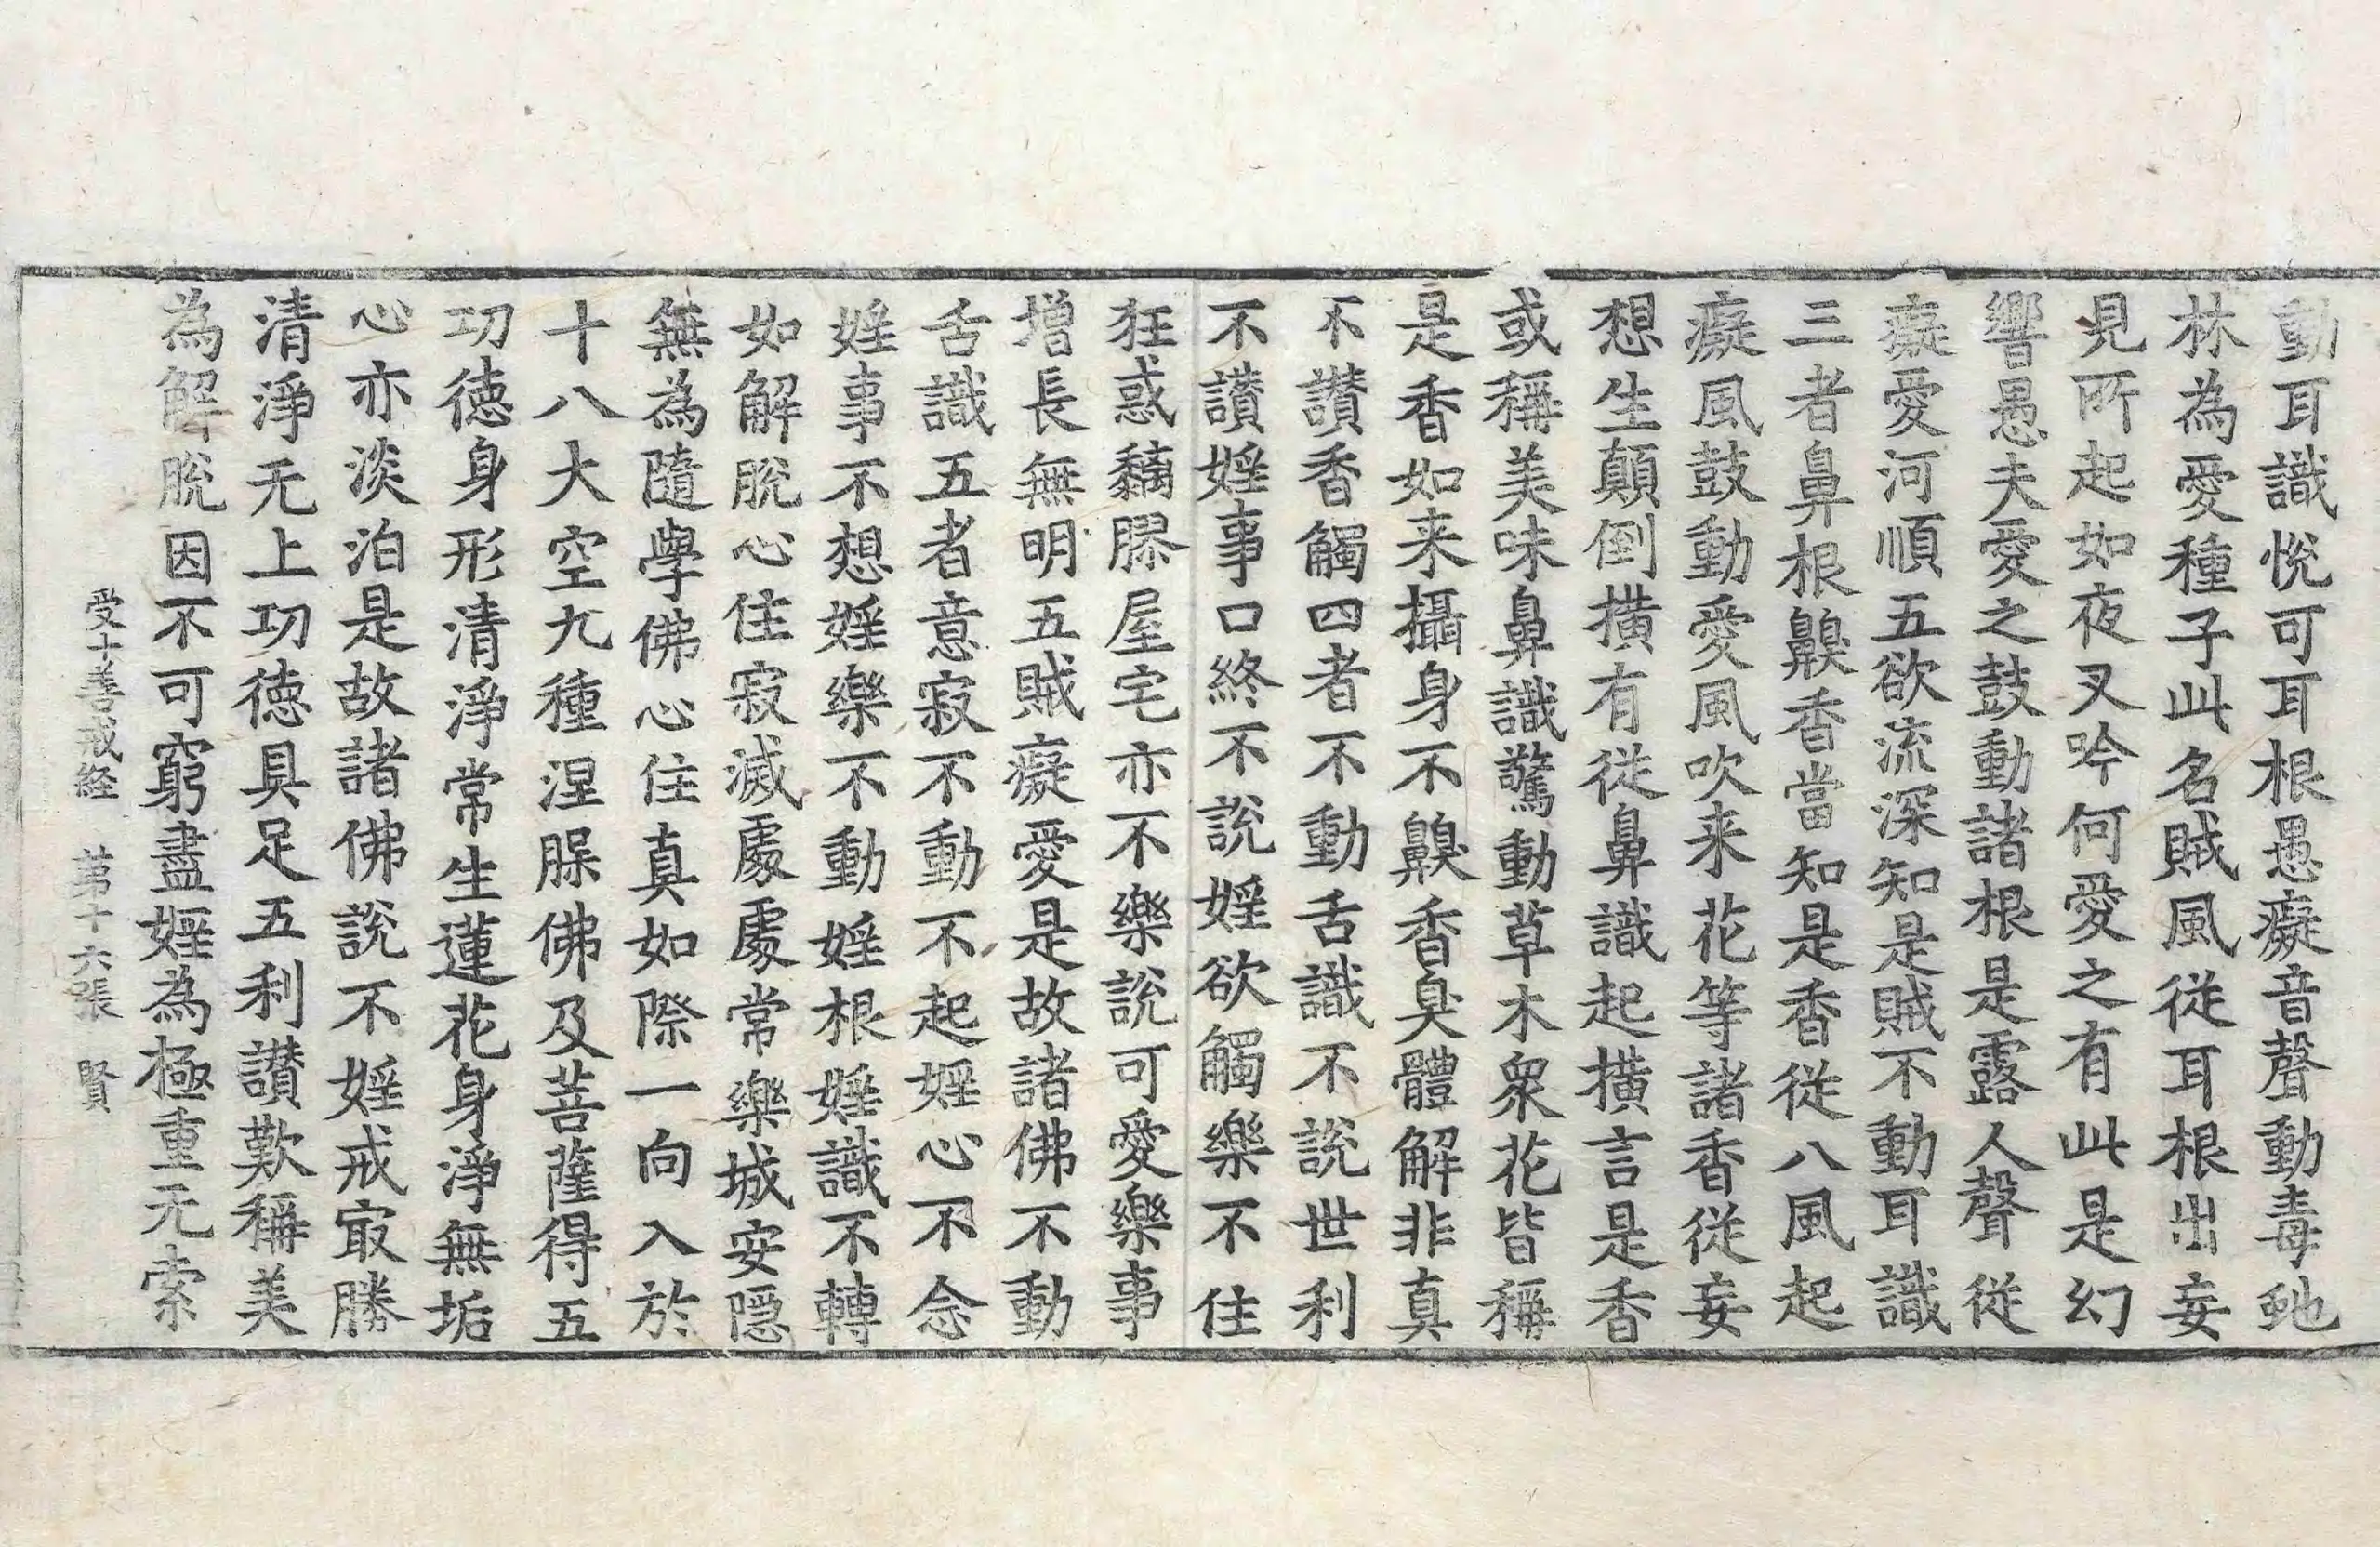 動耳識悅可耳根愚癡音聲動毒虵
林為愛種子此名賊風從耳根出妄
見所起如夜叉吟何愛之有此是幻
響愚夫愛之鼓動諸根是露人聲從
癡愛河順五欲流深知是賊不動耳識
三者鼻根齅香當知是香從八風起
癡風鼓動愛風吹来花等諸香從妄
想生顛倒撗有從鼻識起撗言是香
或稱美味鼻識驚動草木衆花皆稱
是香如来攝身不齅香臭體解非真
不讃香觸四者不動舌識不說世利
不讃婬事口終不說婬欲觸樂不住
狂惑黐膠屋宅亦不樂說可愛樂事
增長無明五賊癡愛是故諸佛不動
舌識五者意寂不動不起婬心不念
婬事不想婬樂不動婬根婬識不轉
如解脫心住寂滅處處常樂城安隱
無為隨學佛心住真如際一向入於
十八大空九種涅槃佛及菩薩得五
功徳身形清淨常生蓮花身淨無垢
心亦淡泊是故諸佛說不婬戒㝡勝
清淨无上功徳具足五利讃歎稱美
為解脫因不可窮盡婬為極重无索
受十善戒経　第十六張　賢